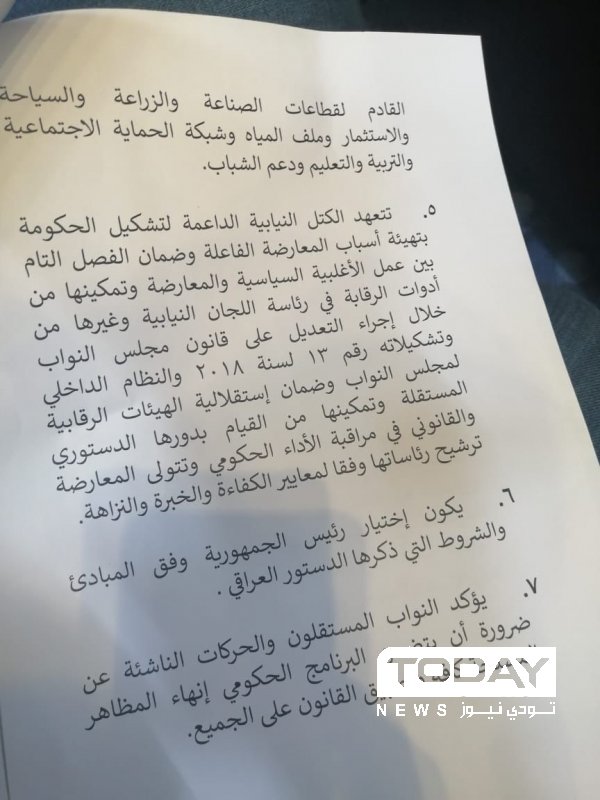 القادم لقطاعات الصناعة والزراعة والسياحة
والاستثمار وملف المياه وشبكة الحماية الاجتماعية
والتربية والتعليم ودعم الشباب.
٥. تتعهد الكتل النيابية الداعمة لتشكيل الحكومة
بتهيئة أسباب المعارضة الفاعلة وضمان الفصل التام
بين عمل الأغلبية السياسية والمعارضة وتمكينها من
أدوات الرقابة في رئاسة اللجان النيابية وغيرها من
خلال إجراء التعديل على قانون مجلس النواب
وتشكيلاته رقم ١٣ لسنة ٢٠١٨ والنظام الداخلي
لمجلس النواب وضمان إستقلالية الهيئات الرقابية
المستقلة وتمكينها من القيام بدورها الدستوري
والقانوني في مراقبة الأداء الحكومي وتتولى المعارضة
ترشيح رئاساتها وفقا لمعايير الكفاءة والخبرة والنزاهة.
٦. يكون إختيار رئيس الجمهورية وفق المبادئ
والشروط التي ذكرها الدستور العراقي .
٧. يؤكد النواب المستقلون والحركات الناشئة عن
ضرورة أن البرنامج الحكومي إنهاء المظاهر
القانون على الجميع.
TODAY
NEWS تودي نيوز